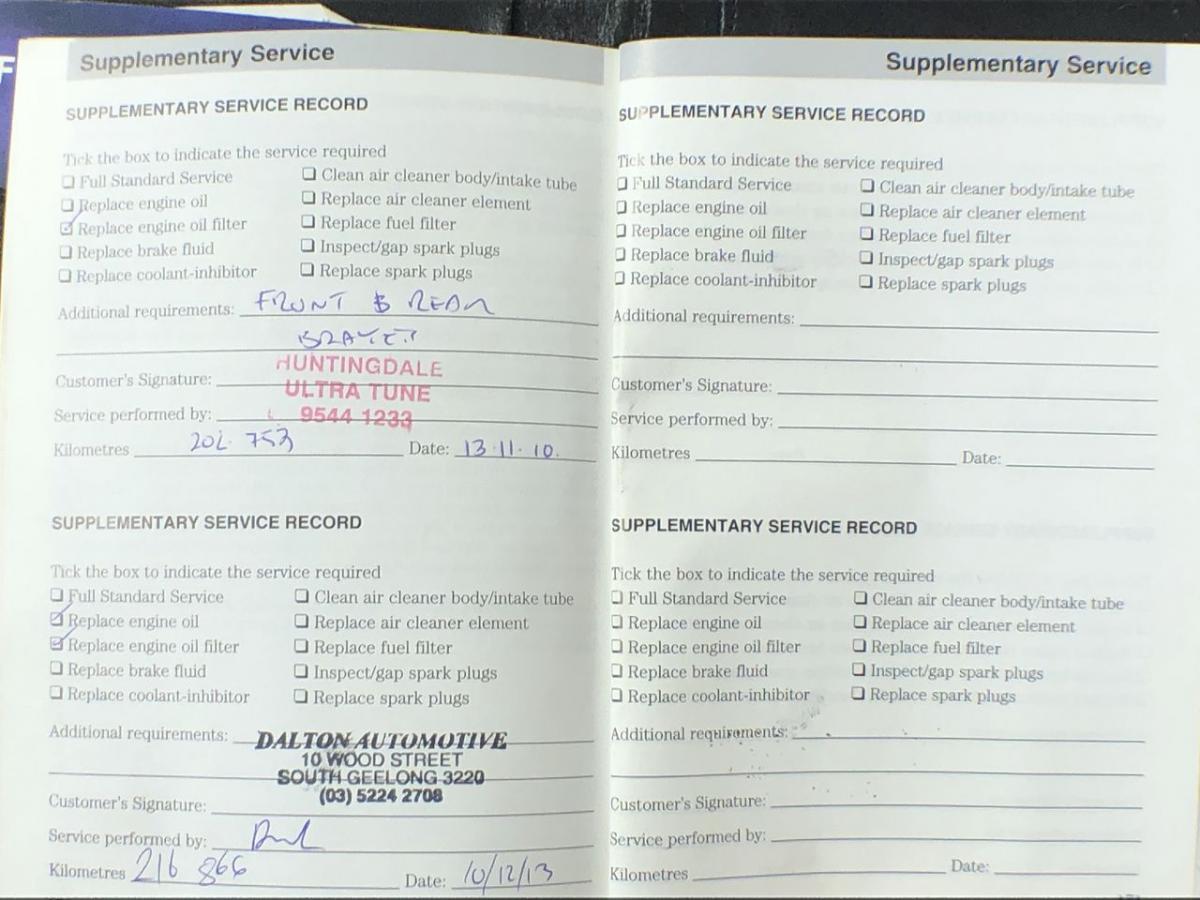 F
Supplementary Service
SUPPLEMENTARY SERVICE RECORD
Tick the box to indicate the service required
Full Standard Service
Replace engine oil
Replace engine oil filter
Replace brake fluid
Replace coolant-inhibitor
Clean air cleaner body/intake tube
Replace air cleaner element
Replace fuel filter
Inspect/gap spark plugs
Replace spark plugs
Additional requirements: FRONT & REAR
Customer's Signature:
HUNTINGDALE
ULTRA TUNE
Service performed by: 9544 1233
Kilometres 202 753 Date: 13.11.10.
SUPPLEMENTARY SERVICE RECORD
Tick the box to indicate the service required
Full Standard Service
Replace engine oil
Replace engine oil filter
Replace brake fluid
Replace coolant-inhibitor
Clean air cleaner body/intake tube
Replace air cleaner element
Replace fuel filter
Inspect/gap spark plugs
Replace spark plugs
Additional requirements: DALTON AUTOMOTIVE
10 WOOD STREET
SOUTH GEELONG 3220
(03) 5224 2708
Customer's Signature:
Service performed by:
Kilometres 216 866 Date: 10/12/13
Supplementary Service
SUPPLEMENTARY SERVICE RECORD
Tick the box to indicate the service required
Full Standard Service
Replace engine oil
Replace engine oil filter
Replace brake fluid
Replace coolant-inhibitor
Clean air cleaner body/intake tube
Replace air cleaner element
Replace fuel filter
Inspect/gap spark plugs
Replace spark plugs
Additional requirements:
Customer's Signature:
Service performed by:
Kilometres Date:
SUPPLEMENTARY SERVICE RECORD
Tick the box to indicate the service required
Full Standard Service
Replace engine oil
Replace engine oil filter
Replace brake fluid
Replace coolant-inhibitor
Clean air cleaner body/intake tube
Replace air cleaner element
Replace fuel filter
Inspect/gap spark plugs
Replace spark plugs
Additional requirements:
Customer's Signature:
Service performed by:
Kilometres Date: